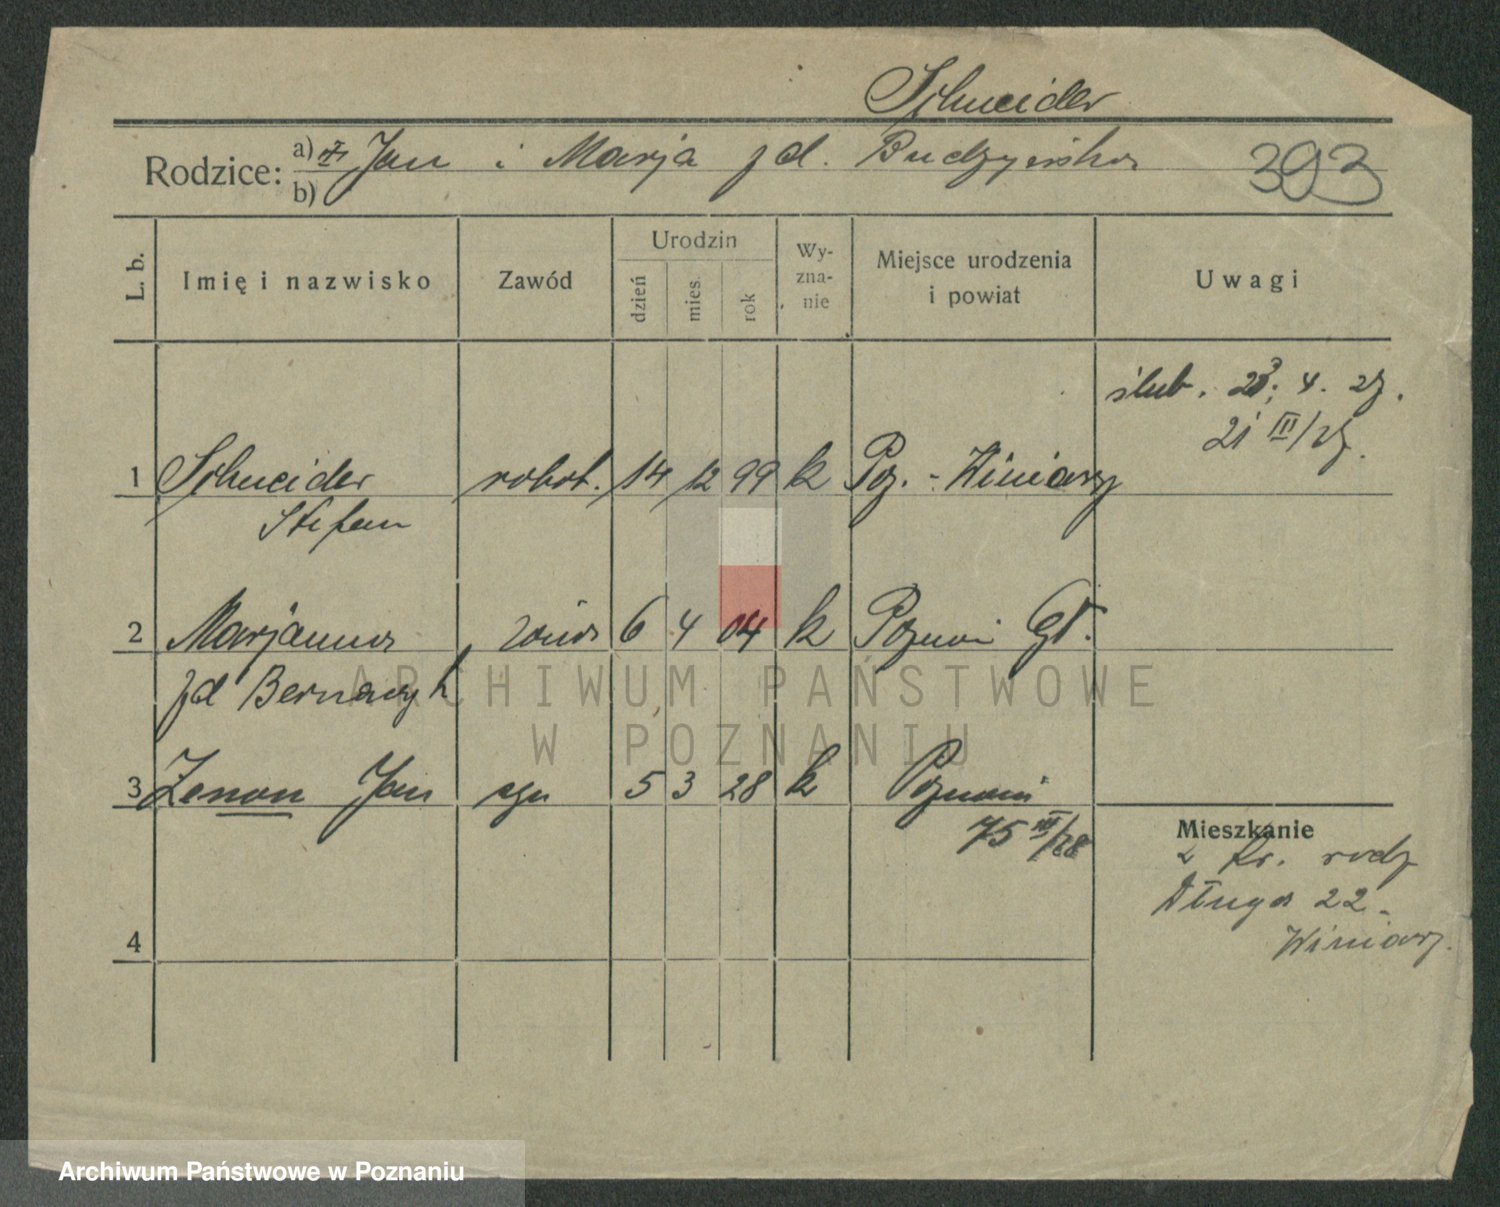 Schneider
Rodzice: a) Jan i Marja zd. Budzyńska
b)
393
L. b. Imię i nazwisko Zawód Urodzin dzień mies. rok Wy-zna-nie Miejsce urodzenia i powiat Uwagi
ślub. 23. 4. 27.
21 III/27.
1 Schneider robot. 14 12 99 k Poz. - Winiary
Stefan
2 Marjanna 6 4 04 k Poznań Gł.
zd Bernaczyk
3 Zenon Jan syn 5 3 28 k Poznań
75 III/28
Mieszkanie
rodz
Długa 22
Winiary.
4
ARCHIWUM PAŃSTWOWE
W POZNANIU
Archiwum Państwowe w Poznaniu